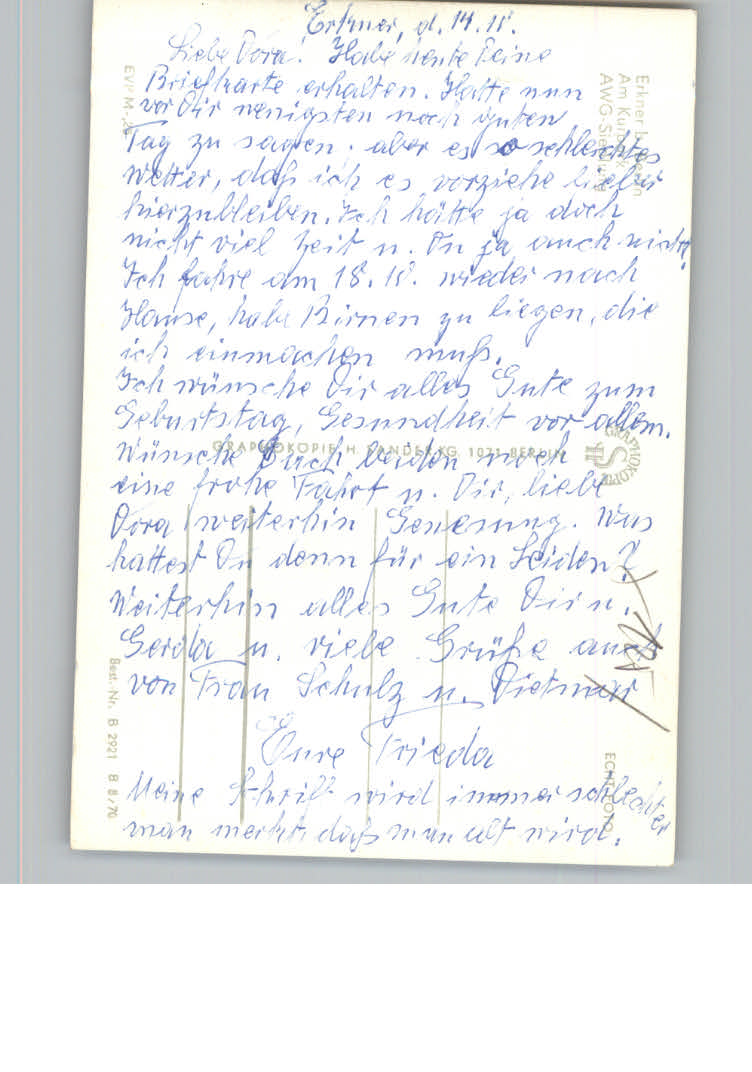 Erkner, d. 14. 10.
Liebe Dora! Habe heute Deine
Briefkarte erhalten. Hatte nun
vor Dir wenigsten noch guten
Tag zu sagen. aber es so schlechtes
Wetter, daß ich es vorziehe lieber
hierzubleiben. Ich hätte ja doch
nicht viel Zeit u. Du ja auch nicht.
Ich fahre am 18. 10. wieder nach
Hause, habe Birnen zu liegen, die
ich einmachen muß.
Ich wünsche Dir alles Gute zum
Geburtstag, Gesundheit vor allem.
Wünsche Euch beiden noch
eine frohe Fahrt u. Dir, liebe
Dora weiterhin Genesung. Was
hattest Du denn für ein Leiden?
Weiterhin alles Gute Dir u.
Gerda u. viele Grüße auch
von Frau Schulz u. Dietmar
Eure Frieda
Meine Schrift wird immer schlechter
man merkt, daß man alt wird.
Erkner b. Berlin
Am Kurpark
AWG-Siedlung
GRAPHOKOPIE H. SANDER KG, 1071 BERLIN
GRAPHOKOPIE
HS
ECHT FOTO
Best.-Nr. B 2921 B 8/70